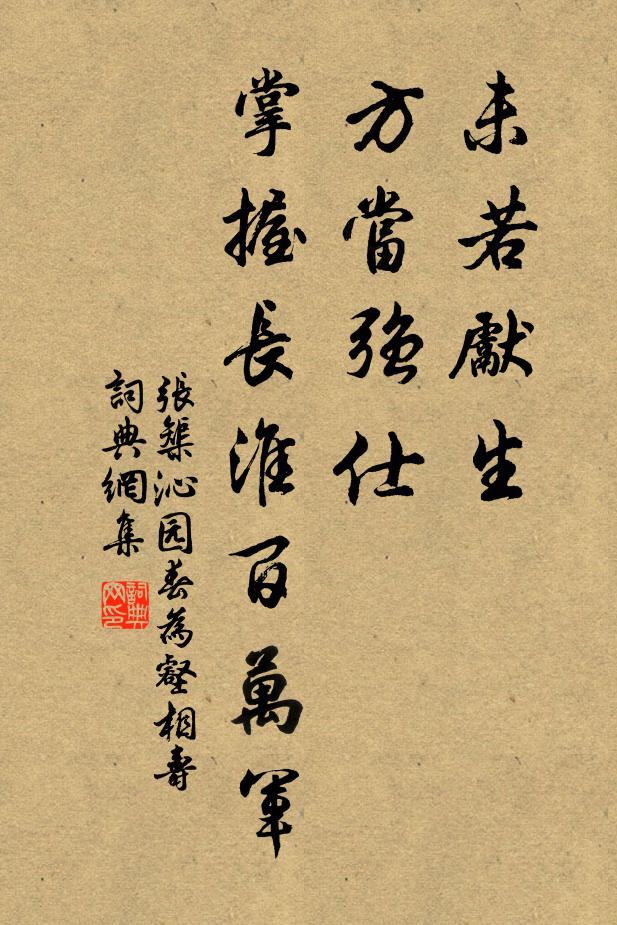 未若獻生
方當強仕
掌握長淮百萬軍
張榘沁园春為壑相壽
詞典網集
詞典網印